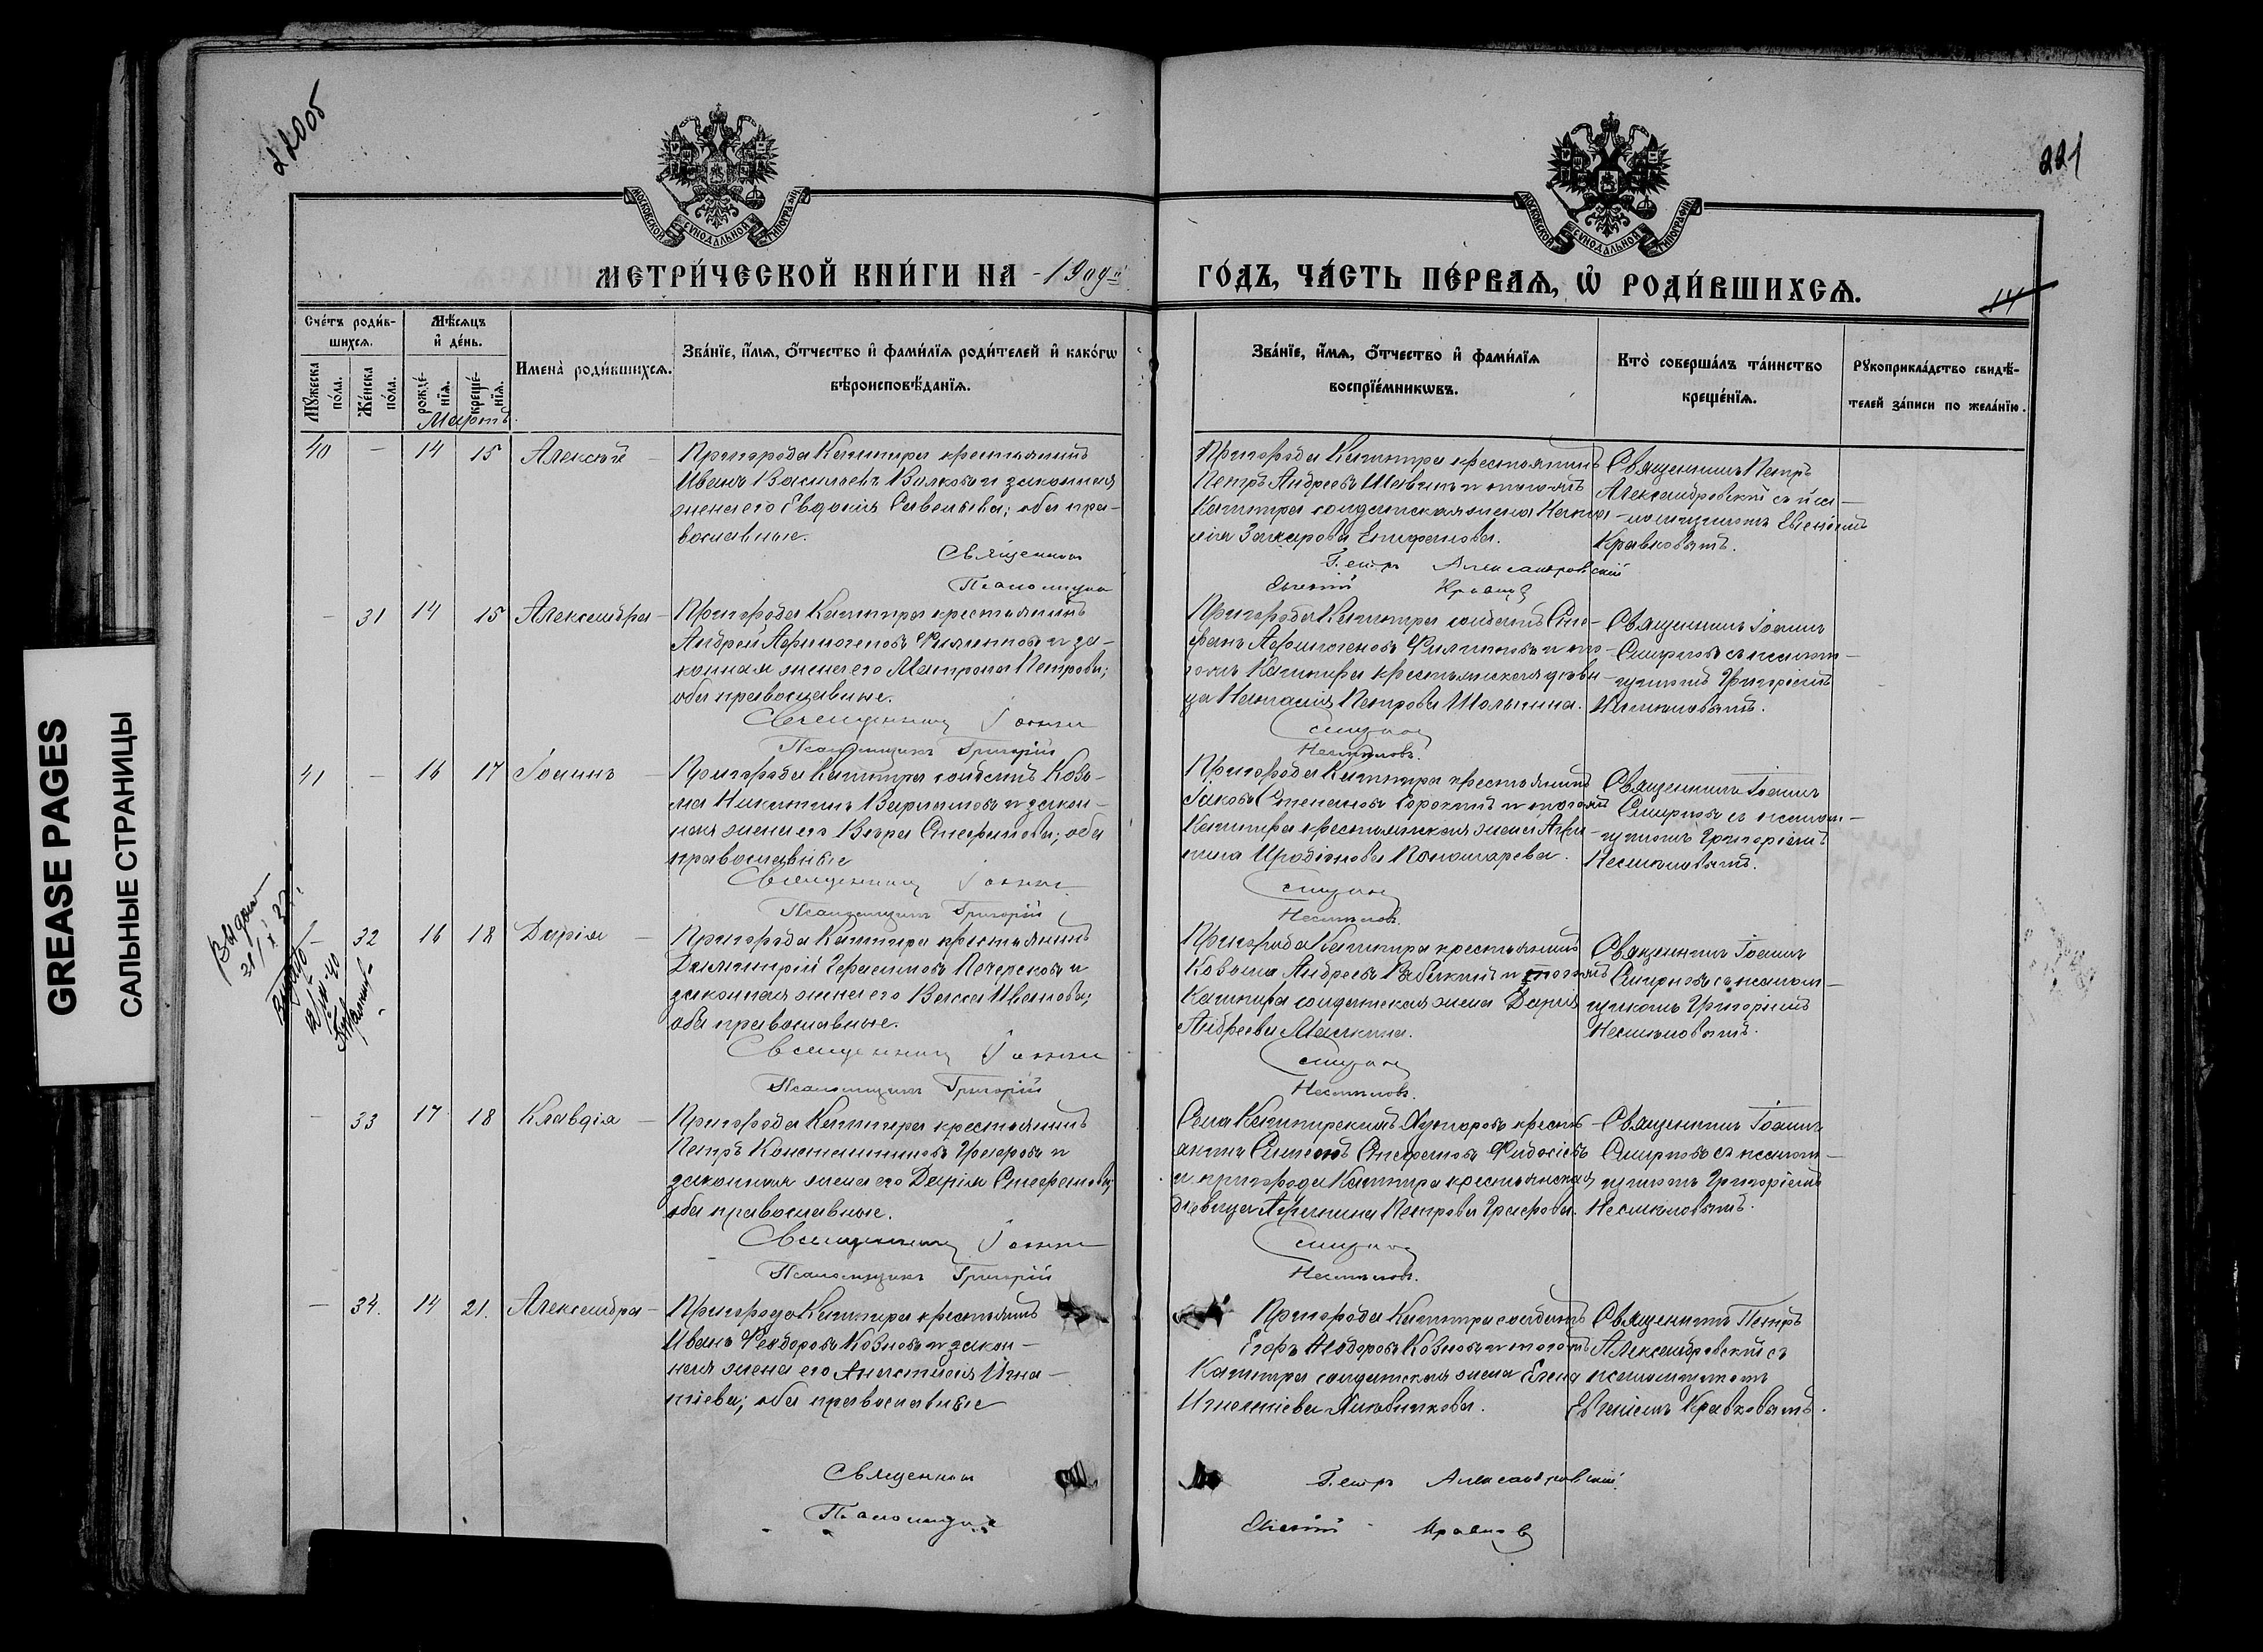 220об
221
МОСКОВСКОЙ СУНОДАЛЬНОЙ ТИПОГРАФІИ
МОСКОВСКОЙ СУНОДАЛЬНОЙ ТИПОГРАФІИ
МЕТРИ́ЧЕСКОЙ КНИ́ГИ НА -1909й
ГО́ДЪ, ЧА́СТЬ ПЕ́РВАѦ, Ѡ҆ РОДИ́ВШИХСѦ.
14
Сче́тъ роди́в-
шихсѧ.
Мѣ́сѧцъ
и҆ де́нь.
Мꙋ́жеска
по́ла.
Же́нска
по́ла.
рожде́-
нїѧ.
креще́-
нїѧ.
Имена̀ роди́вшихсѧ.
Зва́нїе, и҆́мѧ, ѻ҆́тчество и҆ фами́лїѧ роди́телей и҆ како́гѡ
вѣроисповѣ́данїѧ.
Зва́нїе, и҆́мѧ, ѻ҆́тчество и҆ фами́лїѧ
воспрїе́мникѡвъ.
Кто̀ соверша́лъ та́инство
креще́нїѧ.
Рꙋкоприкла́дство свидѣ́-
телей за́писи по жела́нїю.
Мартъ
40 — 14 15 Алексѣй
Пригорода Кашпира крестьянинъ
Иванъ Васильевъ Волковъ и законная
жена его Евдокія Савельева; оба пра-
вославные.
Священник
Псаломщик
Пригорода Кашпира крестьянинъ
Петръ Андреевъ и того-жъ
Кашпира солдатская жена
Захарова Епифанова.
Петръ Александровскій
Евгеній Кравков
Священникъ Петръ
Александровскій съ псал-
ломщикомъ Евгеніемъ
Кравковымъ.
— 31 14 15 Александра
Пригорода Кашпира крестьянинъ
Андрей Афиногеновъ Филипповъ и за-
конная жена его Матрона Петрова;
оба православные.
Священникъ Іоаннъ
Псаломщикъ Григорій
Пригорода Кашпира солдатъ Сте-
фанъ Афиногеновъ Филипповъ и то-
гожъ Кашпира крестьянская дѣви-
ца Петрова
Смирнов
Несмѣловъ.
Священникъ Іоаннъ
Смирновъ съ псалом-
щикомъ Григоріемъ
Несмѣловымъ.
41 — 16 17 Іоаннъ
Пригорода Кашпира солдатъ Козь-
ма Никитинъ Варламовъ и закон-
ная жена его Вѣра Стефанова; оба
православные
Священникъ Іоаннъ
Псаломщикъ Григорій
Пригорода Кашпира крестьянинъ
Іаковъ Степановъ Сорокинъ и того-жъ
Кашпира крестьянская жена Агри-
пина Иродіонова Пономарева.
Смирнов
Несмѣловъ.
Священникъ Іоаннъ
Смирновъ съ псалом-
щикомъ Григоріемъ
Несмѣловымъ.
— 32 16 18 Дарія
Пригорода Кашпира крестьянинъ
Димитрій Герасимовъ Печерсковъ и
законная жена его Васса Иванова;
оба православные.
Священникъ Іоаннъ
Псаломщикъ Григорій
Пригорода Кашпира крестьянинъ
Козьма Андреевъ и того-жъ
Кашпира солдатская жена Дарія
Андреева
Смирнов
Несмѣловъ.
Священникъ Іоаннъ
Смирновъ съ псалом-
щикомъ Григоріемъ
Несмѣловымъ.
— 33 17 18 Клавдія
Пригорода Кашпира крестьянинъ
Петръ Константиновъ и
законная жена его Дарія Стефанова;
оба православные.
Священникъ Іоаннъ
Псаломщикъ Григорій
Села Кашпирскихъ Хуторовъ кресть-
янинъ Симеонъ Стефановъ Федосѣевъ
и пригорода Кашпира крестьянская
дѣвица Агрипина Петрова
Смирнов
Несмѣловъ.
Священникъ Іоаннъ
Смирновъ съ псалом-
щикомъ Григоріемъ
Несмѣловымъ.
— 34. 14 21. Александра
Пригорода Кашпира крестьянинъ
Иванъ Феодоровъ Козновъ и закон-
ная жена его Анастасія Игна-
тіева; оба православные
Священник
Псаломщик
Пригорода Кашпира солдатъ
Егоръ Феодоровъ Козновъ и того-жъ
Кашпира солдатская жена Елена
Игнатіева
Петръ Александровскій
Евгеній Кравков
Священникъ Петръ
Александровскій съ
псаломщикомъ
Евгеніемъ Кравковымъ.
GREASE PAGES
САЛЬНЫЕ СТРАНИЦЫ